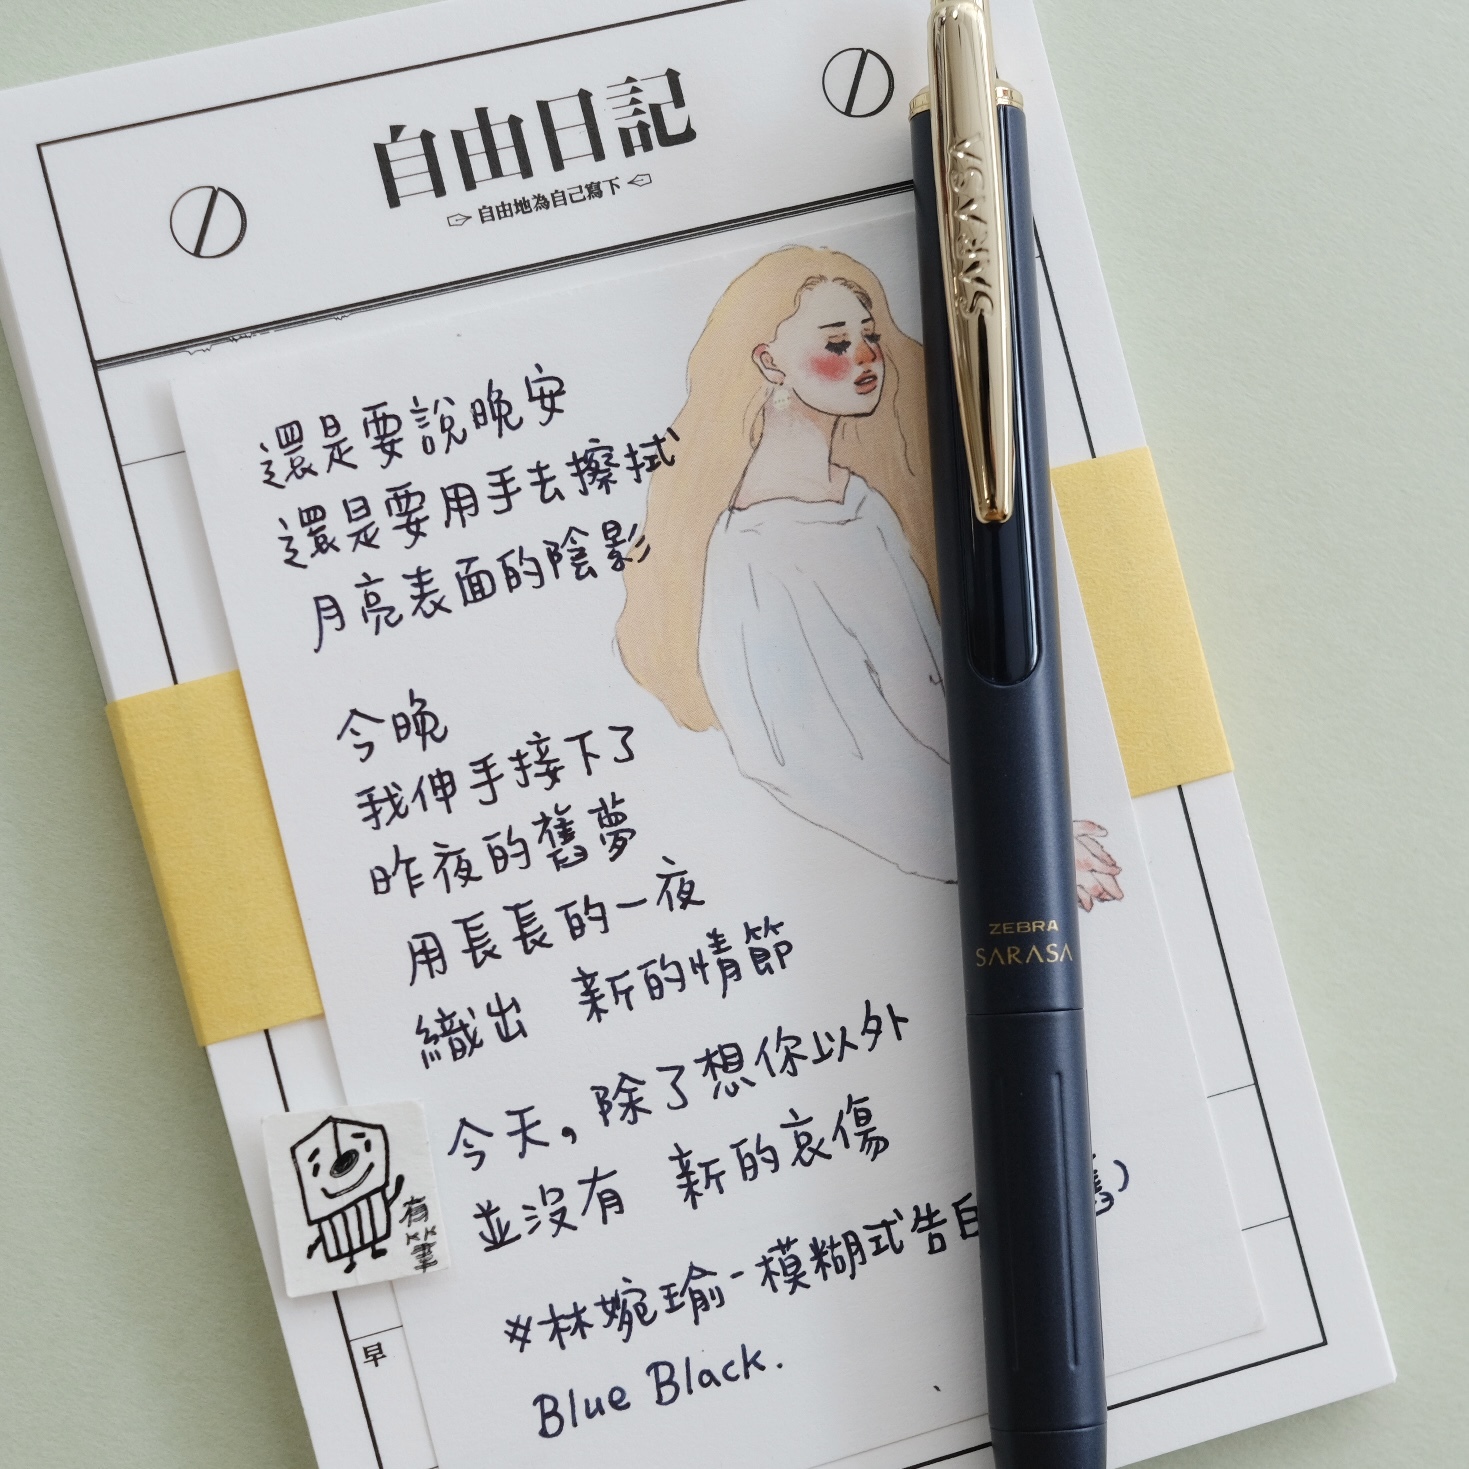 自由日記
自由地為自己寫下
SARASA
還是要說晚安
還是要用手去擦拭
月亮表面的陰影
今晚
我伸手接下了
昨夜的舊夢
用長長的一夜
織出 新的情節
今天，除了想你以外
並沒有 新的哀傷
※林婉瑜-模糊式告白
Blue Black.
ZEBRA
SARASA
有筆
早